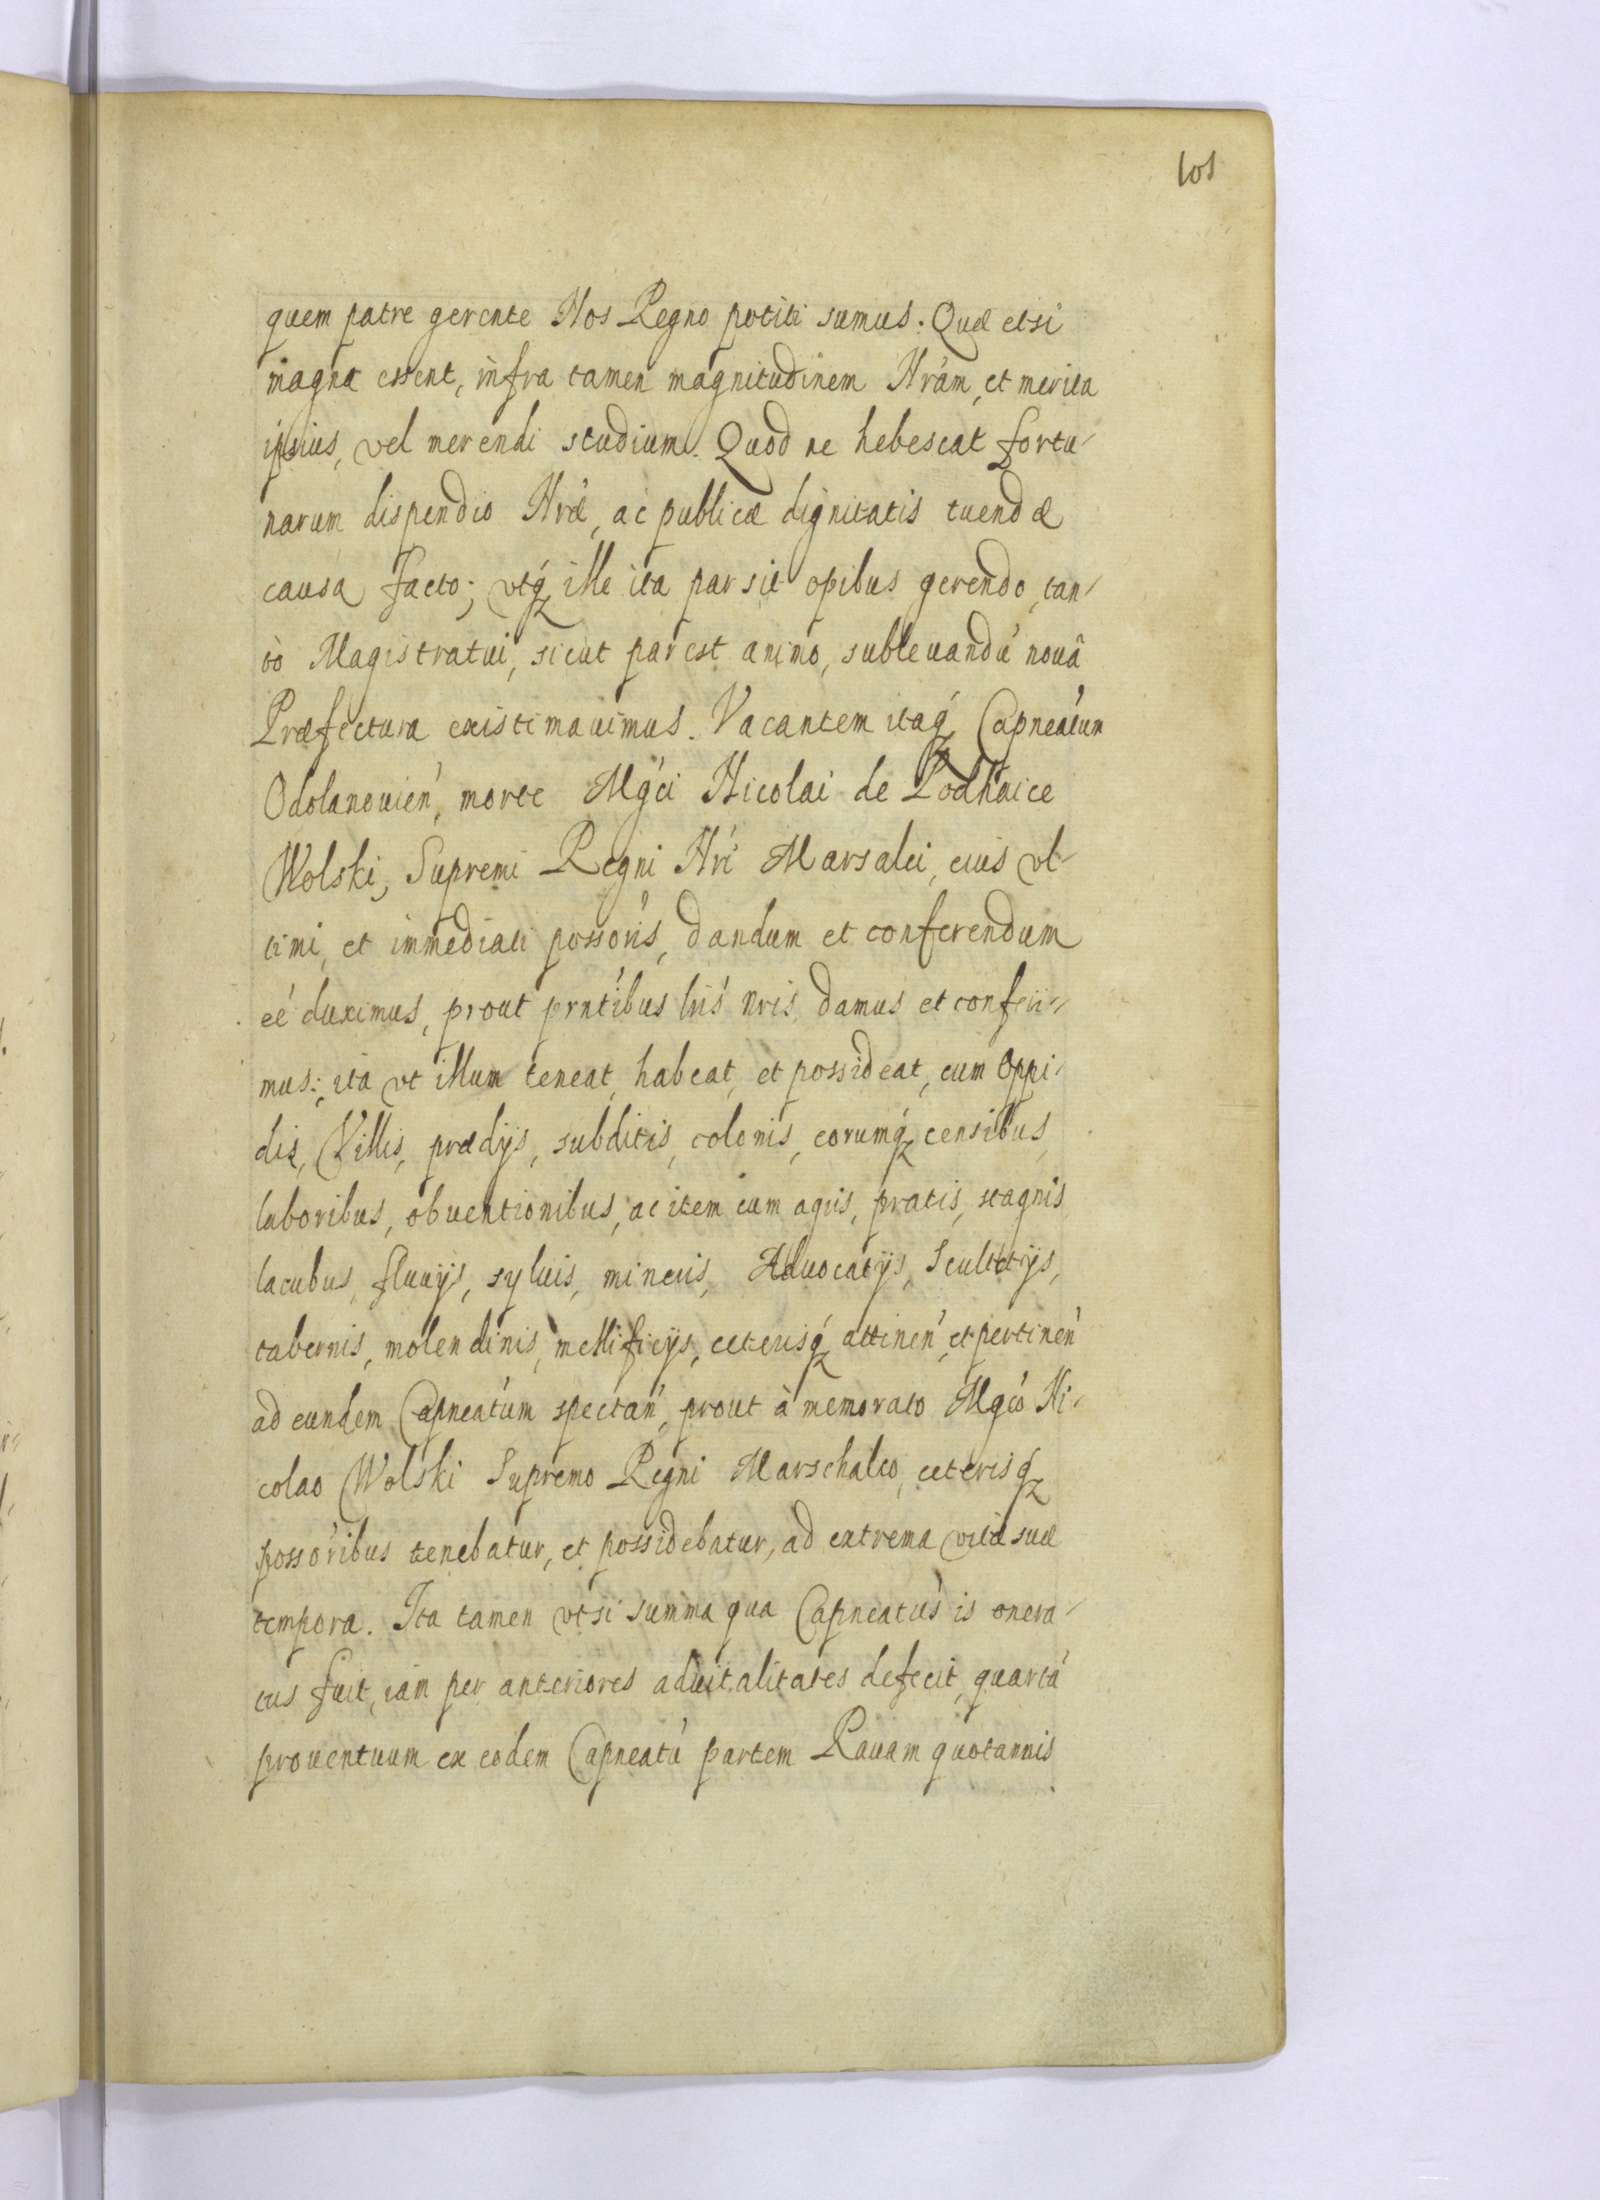 101
quem patre gerente Nos Regno potiti sumus. Quæ etsi
magna essent, infra tamen magnitudinem Nrám, et merita
ipsius, vel merendi studium. Quod ne hebescat fortu-
narum dispendio Nræ, ac publicæ dignitatis tuendæ
causa facto; vtq́ ille ita par sit opibus gerendo, tan-
to Magistratui, sicut par est animo, subleuandú nouâ
Præfectura existimauimus. Vacantem itaq́ Capneátum
Odolanouień, morte Mgći Nicolai de Podhaice
Wolski, Supremi Regni Nri Marsalci, eius vl-
timi, et immediati possoŕis, dandum et conferendum
eé duximus, prout prńtibus lris nris damus et conferi-
mus: ita vt illum teneat, habeat, et possideat, cum Oppi-
dis, Villis, prædijs, subditis, colonis, eorumq́ censibus,
laboribus, obuentionibus, ac item cum agris, pratis, stagnis
lacubus, fluuijs, syluis, mineris, Aduocatijs, Scultetijs,
tabernis, molendinis, mellificijs, ceterisq́ attineń, et pertineń
ad eundem Capneatúm spectań, prout à memorato Mgćo Ni-
colao Wolski Supremo Regni Marschalco, ceterisq́
possoŕibus tenebatur, et possidebatur, ad extrema vitæ suæ
tempora. Ita tamen vt si summa qua Capneatús is onera-
tus fuit, iam per anteriores aduitalitates defecit, quartá
prouentuum ex eodem Capneatú partem Rauam quotannis